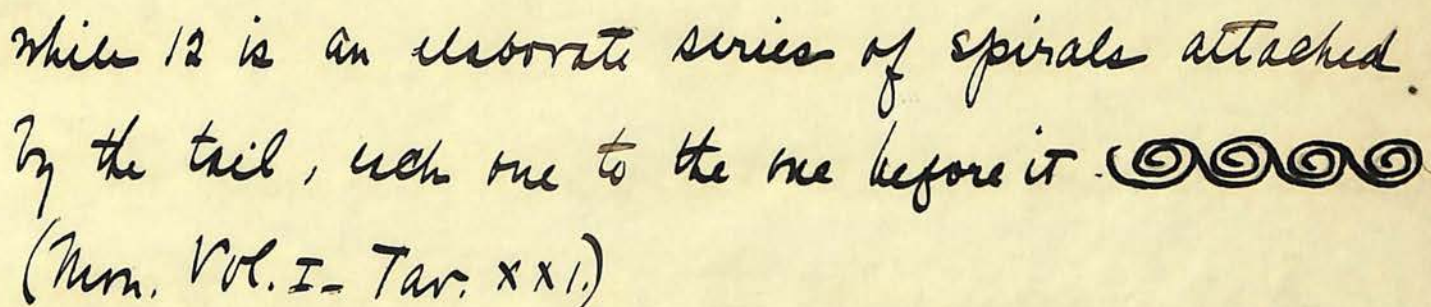 while 12 is an elaborate series of spirals attached
by the tail, each one to the one before it.
(Mon. Vol. I - Tav. XXI.)